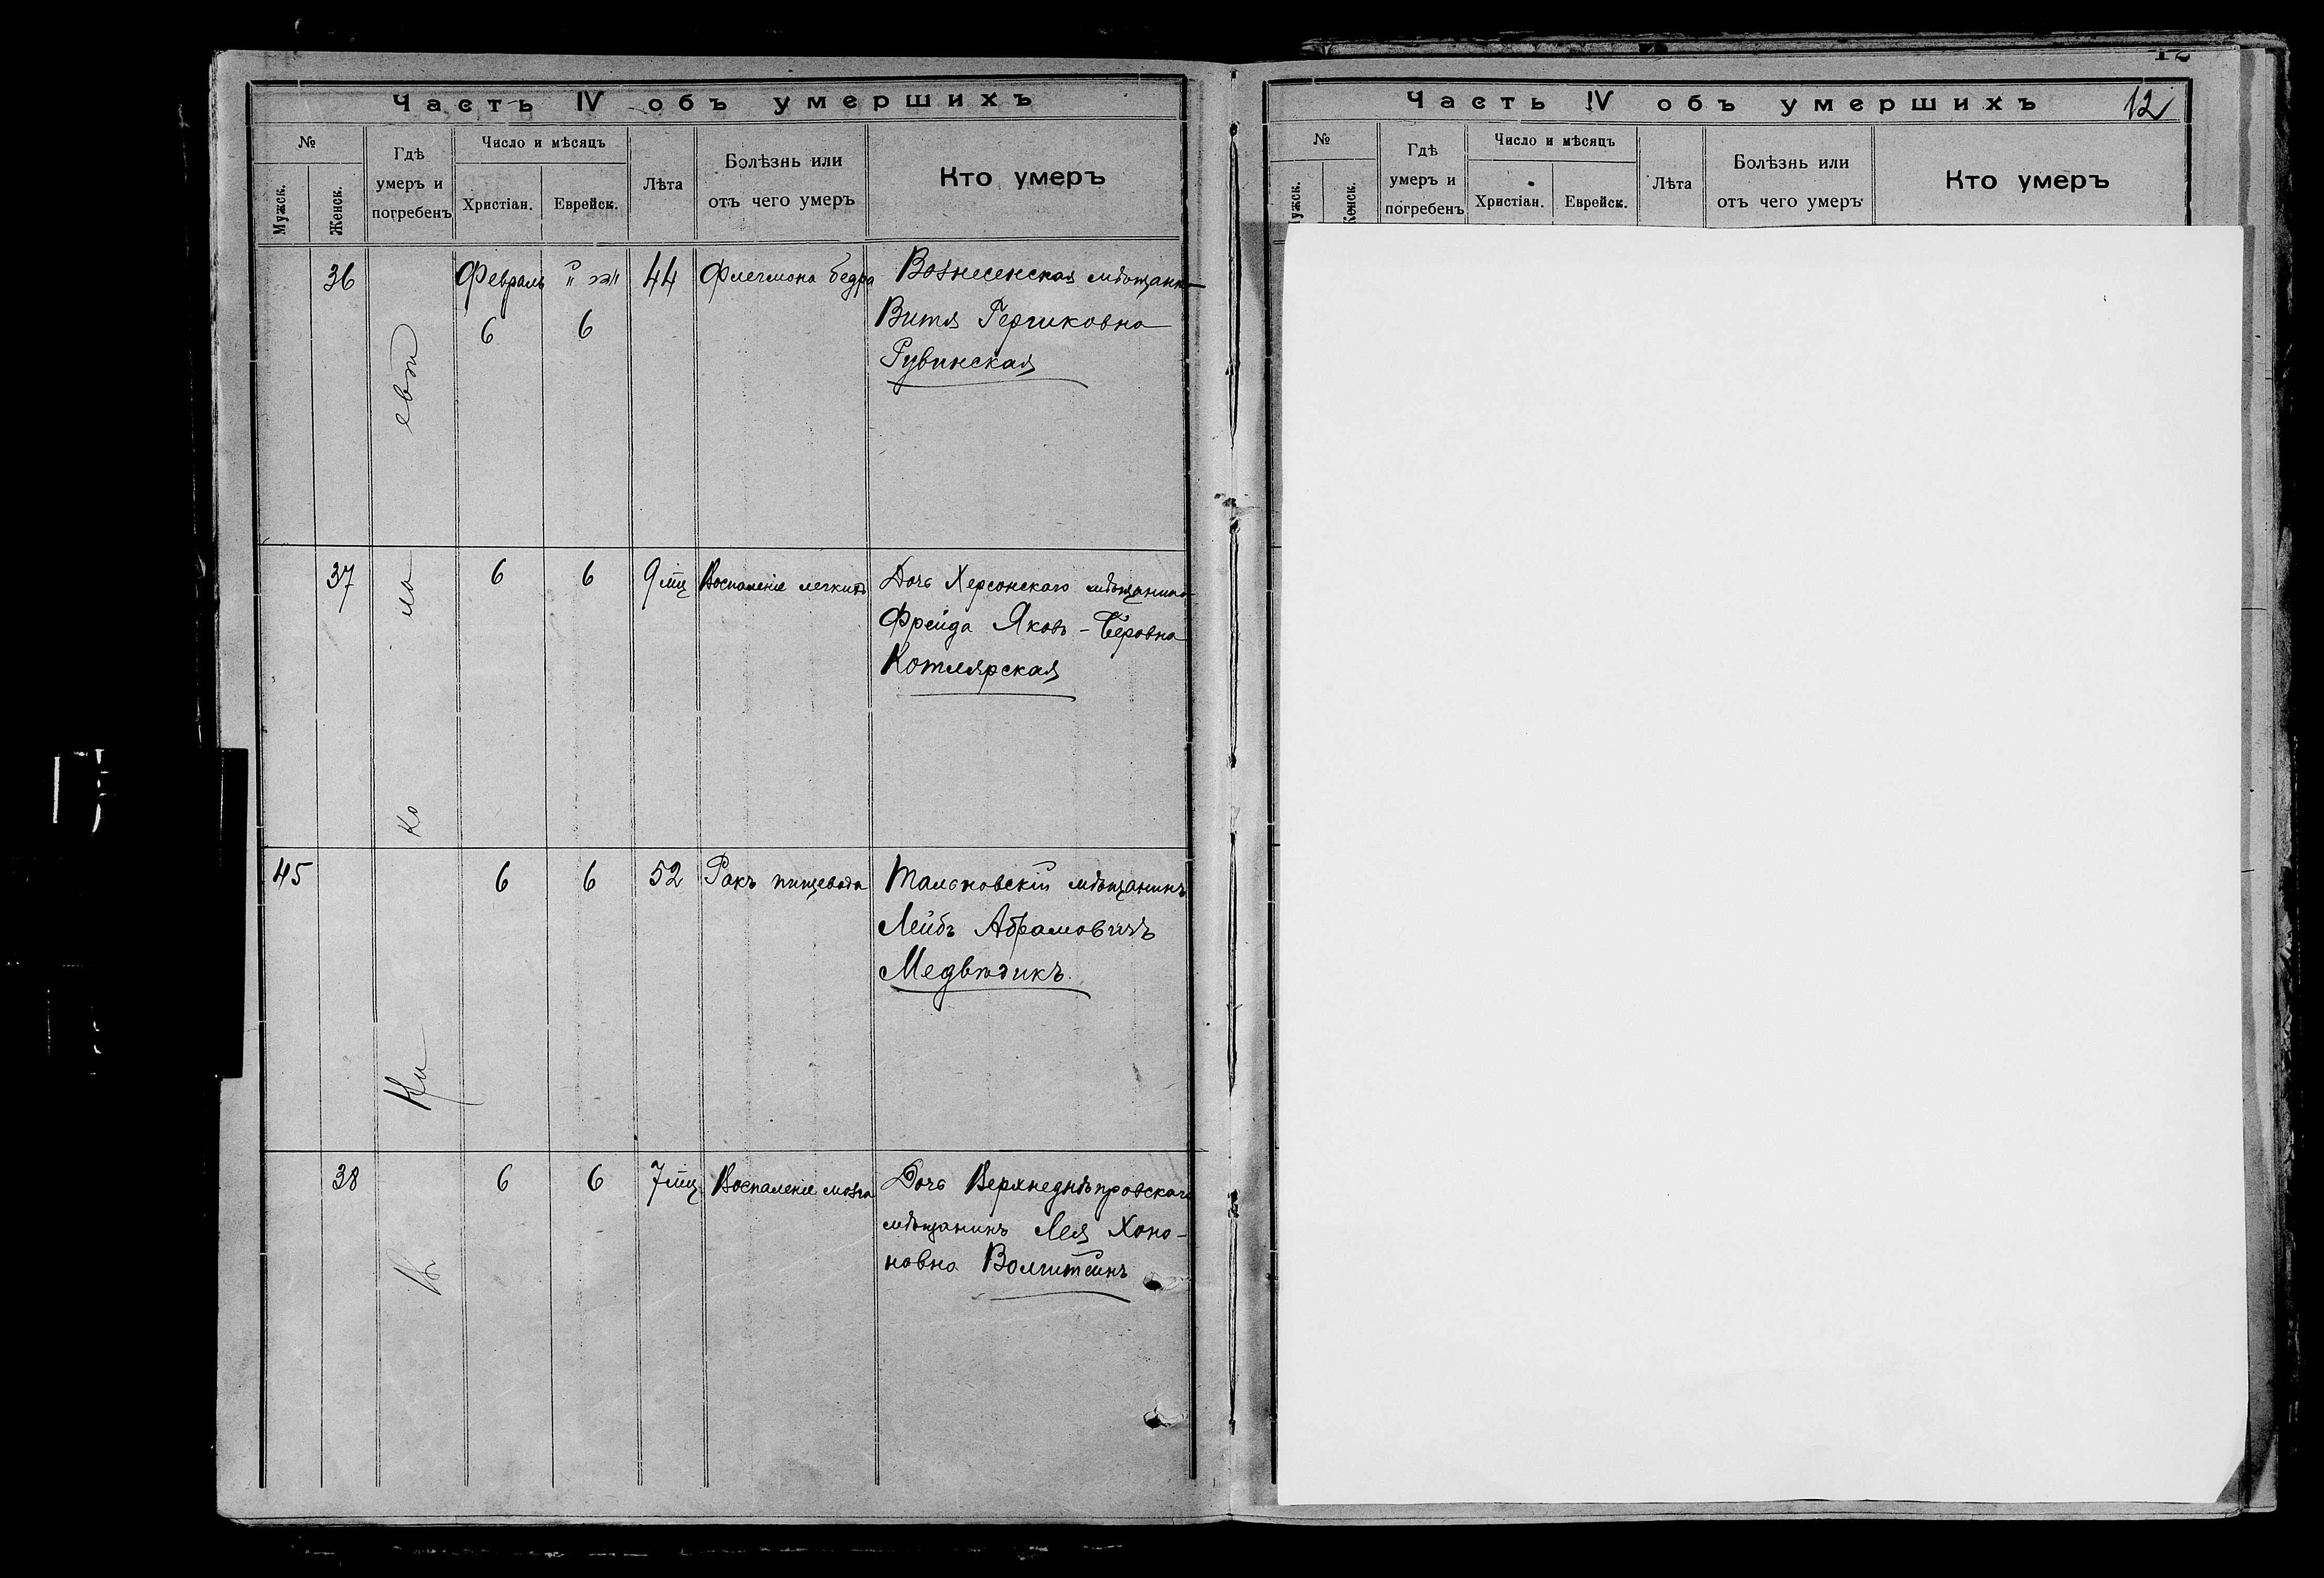 Часть IV объ умершихъ
№
Мужск.
Женск.
Гдѣ
умеръ и
погребенъ
Число и мѣсяцъ
Христіан.
Еврейск.
Лѣта
Болѣзнь или
отъ чего умеръ
Кто умеръ
36
Февраль
6
6
44
Флегмона бедра
Вознесенская мѣщанка
Витя Гершковна
Рувинская
37
6
6
9 мц
Воспаленіе легкихъ
Дочь Херсонскаго мѣщанина
Фрейда Яковъ-Беровна
Котлярская
45
6
6
52
Ракъ пищевода
Тальновскій мѣщанинъ
Лейбъ Абрамовичъ
Медвѣдикъ
38
6
6
7 мц
Воспаленіе мозга
Дочь Верхнеднѣпровскаго
мѣщанинъ Лея Хоно-
новна Волштейнъ
Въ
Ни
ко
ла
евѣ
Часть IV объ умершихъ
12
№
ужск.
Женск.
Гдѣ
умеръ и
погребенъ
Число и мѣсяцъ
Христіан.
Еврейск.
Лѣта
Болѣзнь или
отъ чего умеръ
Кто умеръ